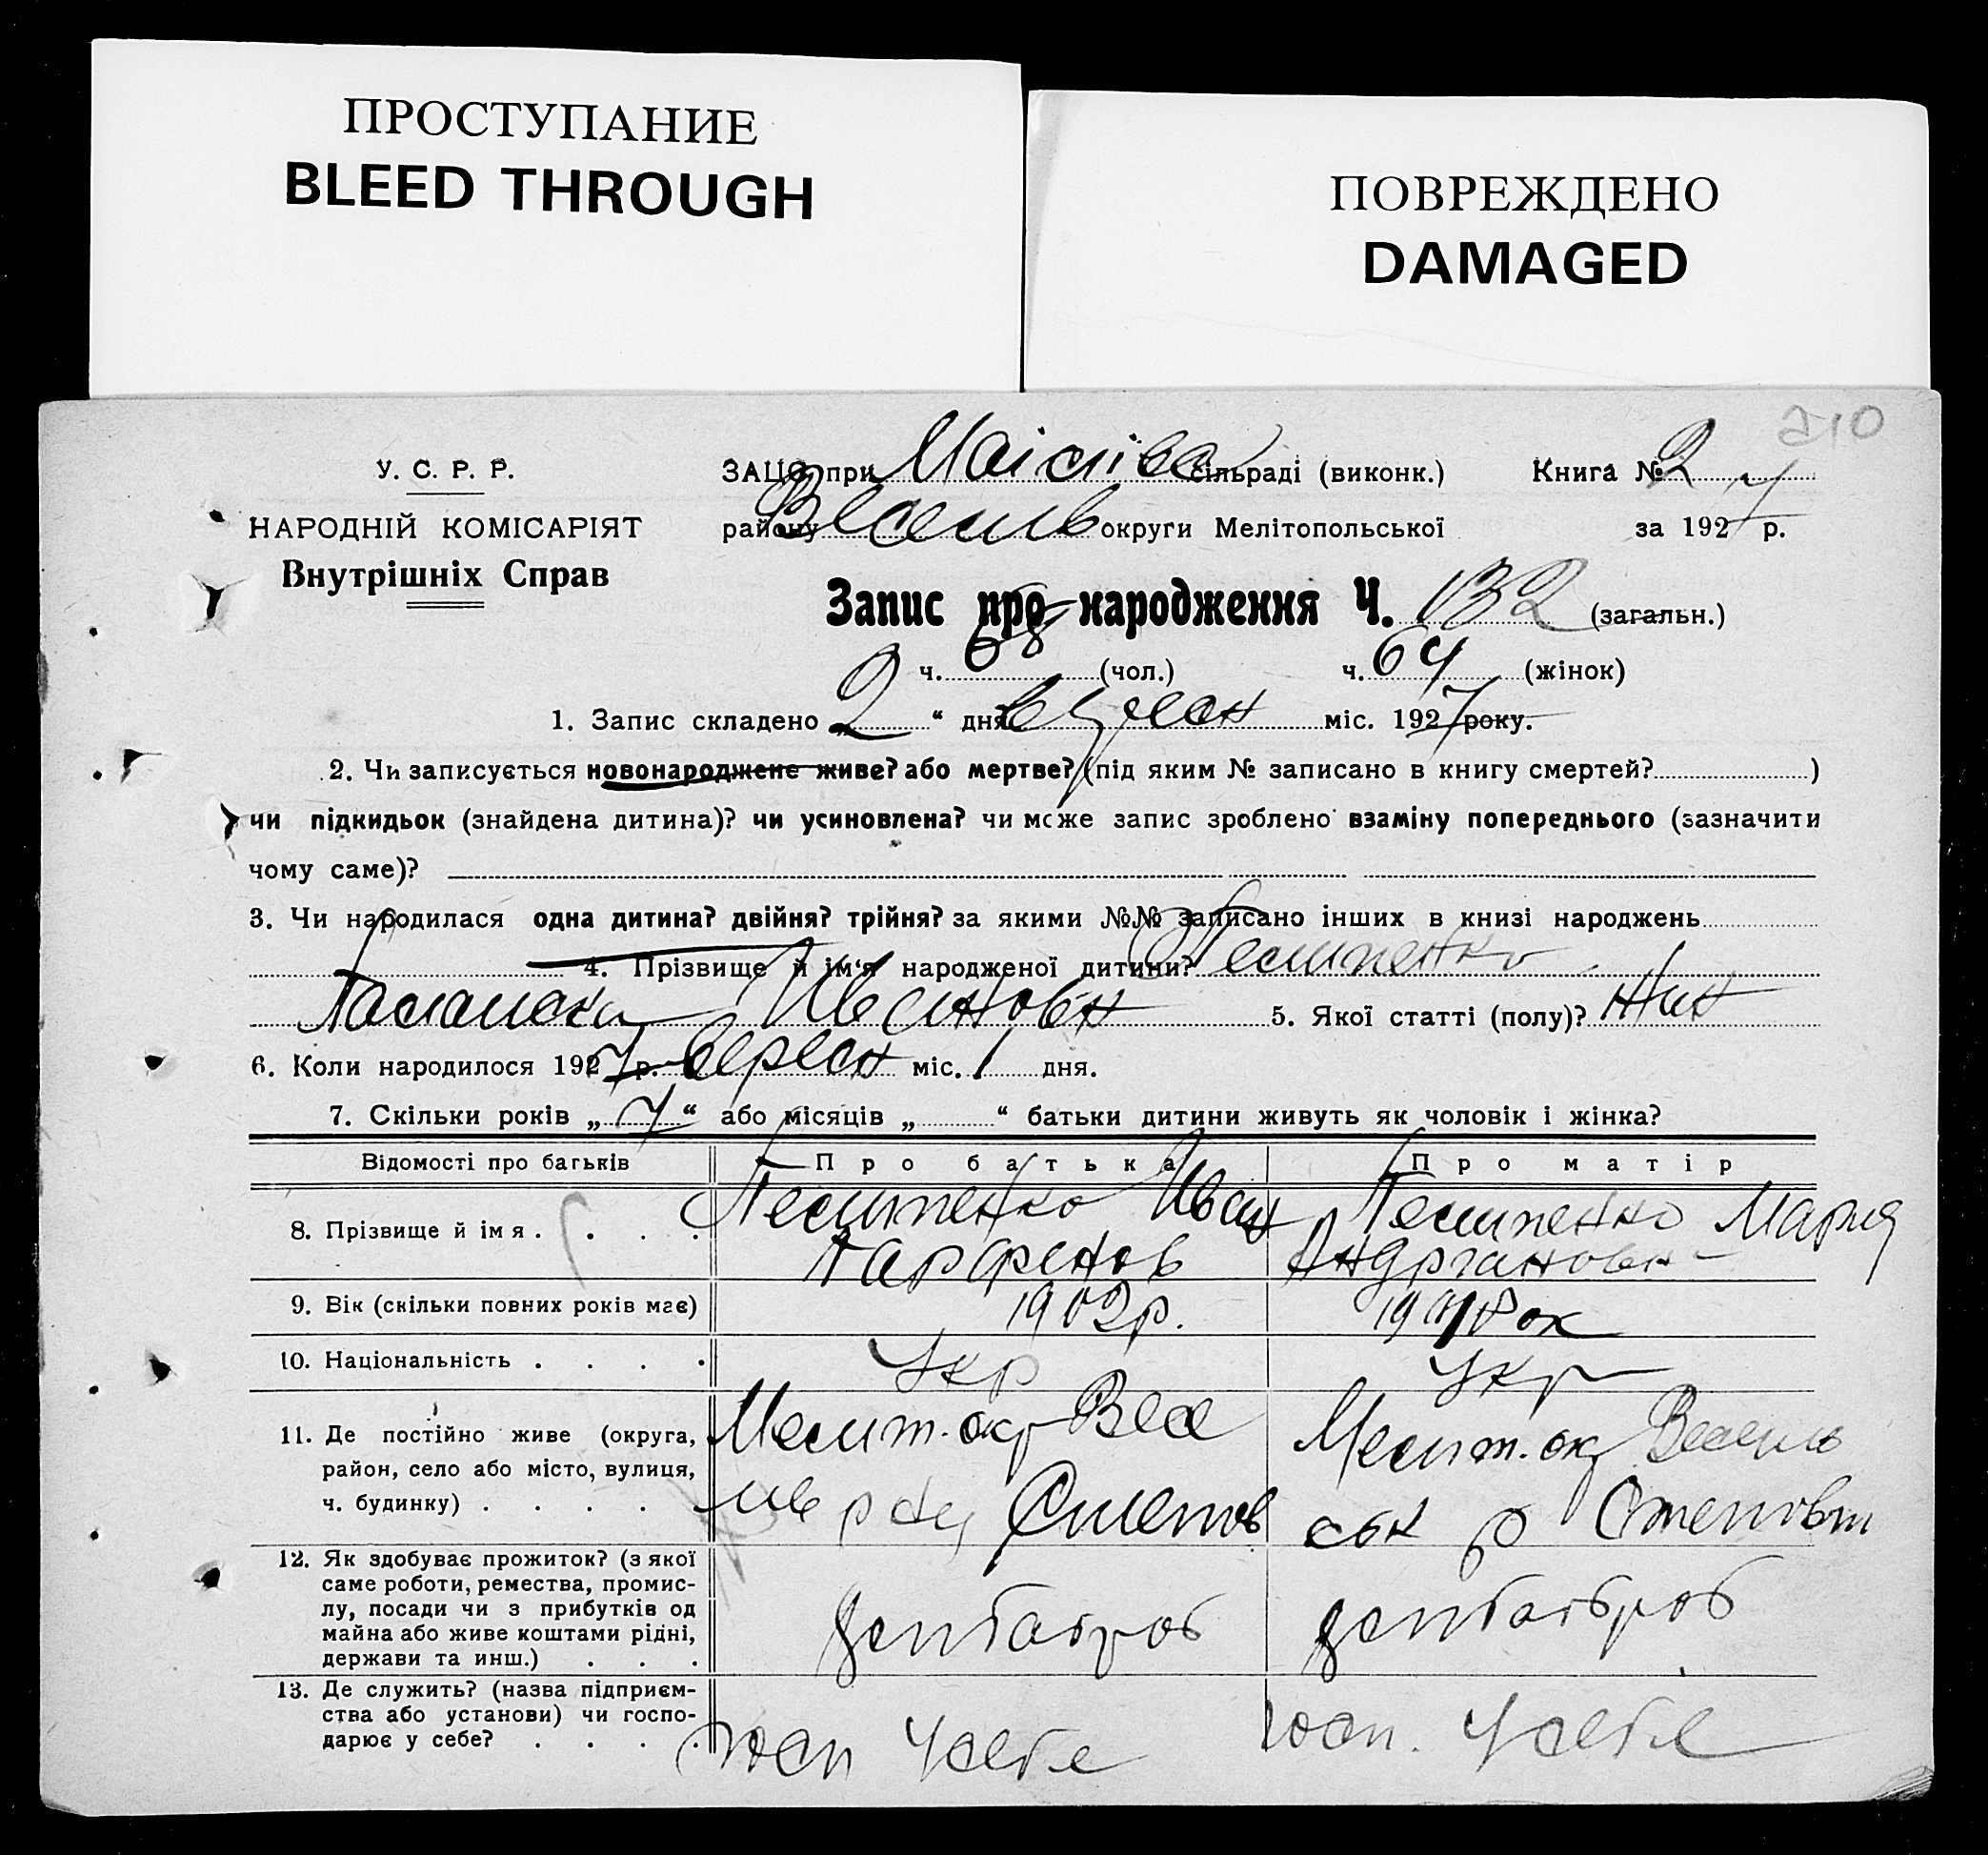 ПРОСТУПАНИЕ
BLEED THROUGH
ПОВРЕЖДЕНО
DAMAGED
210
У. С. Р. Р.
НАРОДНІЙ КОМІСАРІЯТ
Внутрішніх Справ
ЗАЦС при сільраді (виконк.) Книга № 2
району Весели округи Мелітопольської за 1927 р.
Запис про народження Ч. 132 (загальн.)
ч. 68 (чол.) ч. 64 (жінок)
1. Запис складено „2“ дня вересн міс. 1927 року.
2. Чи записується новонароджене живе? або мертве? (під яким № записано в книгу смертей? )
чи підкидьок (знайдена дитина)? чи усиновлена? чи може запис зроблено взаміну попереднього (зазначити
чому саме)?
3. Чи народилася одна дитина? двійня? трійня? за якими №№ записано інших в книзі народжень
4. Прізвище й ім‘я народженої дитини? Пелипенко
Палашка Ивановн 5. Якої статті (полу)? Жин
6. Коли народилося 1927 р. вересн міс. 1 дня.
7. Скільки років „7“ або місяців „ “ батьки дитини живуть як чоловік і жінка?
Відомості про батьків Про батька Про матір
8. Прізвище й імя . . . . Пелипенко Иван Пелипенко Мария
Парфенов Андріановн
9. Вік (скільки повних років має) 1902р.
10. Національність . . . . Укр Укр
11. Де постійно живе (округа, Мелит. окр Весе Мелит. ок Весели
район, село або місто, вулиця,
ч. будинку) . . . .
12. Як здобуває прожиток? (з якої
саме роботи, ремества, промис-
лу, посади чи з прибутків од
майна або живе коштами рідні, хлибороб хлибороб
держави та инш.) . . .
13. Де служить? (назва підприєм-
ства або установи) чи госпо-
дарює у себе? . . . . госп у себе госп. у себе